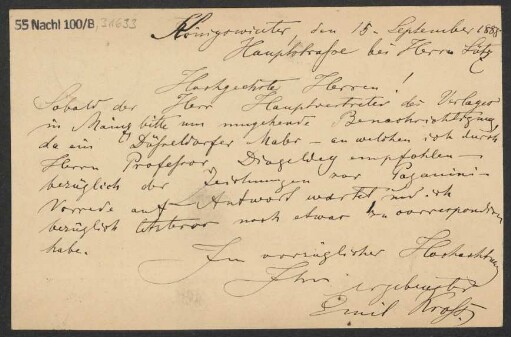 55 Nachl 100/B, 31633
Königswinter, den 15. September 1888
Hauptstrasse bei Herrn Lütz
Hochgeehrte Herren!
Sobald der Herr Hauptvertreter des Verlages
in Mainz bitte um umgehende Benachrichtigung,
da ein Düsseldorfer Maler – an welchen ich durch
Herrn Professor Dingeldey empfohlen –
bezüglich der Zeichnungen zur Paganini-
Vorrede auf Antwort wartet und ich
bezüglich letzterer noch etwas zu correspondiren
habe.
In vorzüglicher Hochachtung
Ihr ergebenster
Emil Kross